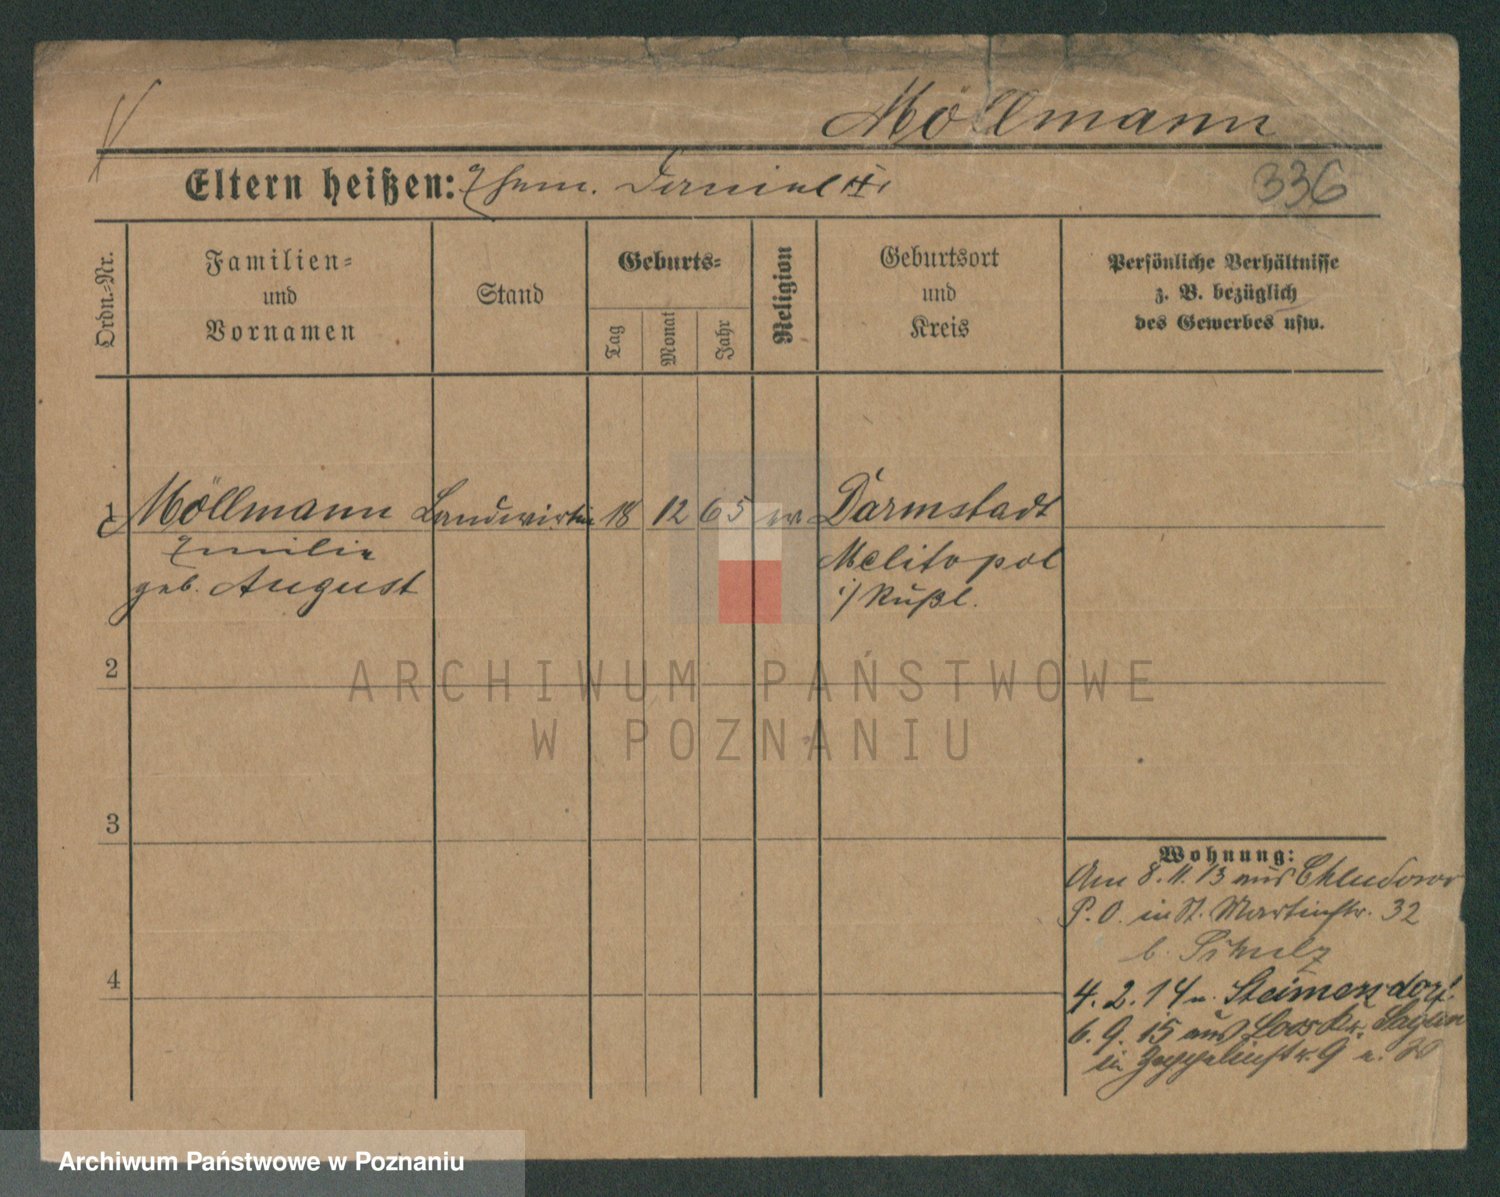 Möllmann
Eltern heißen: Ehem. Daniel
336
Ordn.-Nr.
Familien-
und
Vornamen
Stand
Geburts-
Tag
Monat
Jahr
Religion
Geburtsort
und
Kreis
Persönliche Verhältnisse
z. B. bezüglich
des Gewerbes usw.
1 Möllmann Landwirtin 18 12 65 ev Darmstadt
Emilie Melitopol
geb. August i/ Rußl.
2
3
4
Wohnung:
Am 8.11.13 aus Chludowo
P.O. in St. Martinstr. 32
b. Schulz
4.2.14 n.
6.9.15 aus Loos Kr. Sagan
in Zeppelinstr. 9
ARCHIWUM PAŃSTWOWE
W POZNANIU
Archiwum Państwowe w Poznaniu